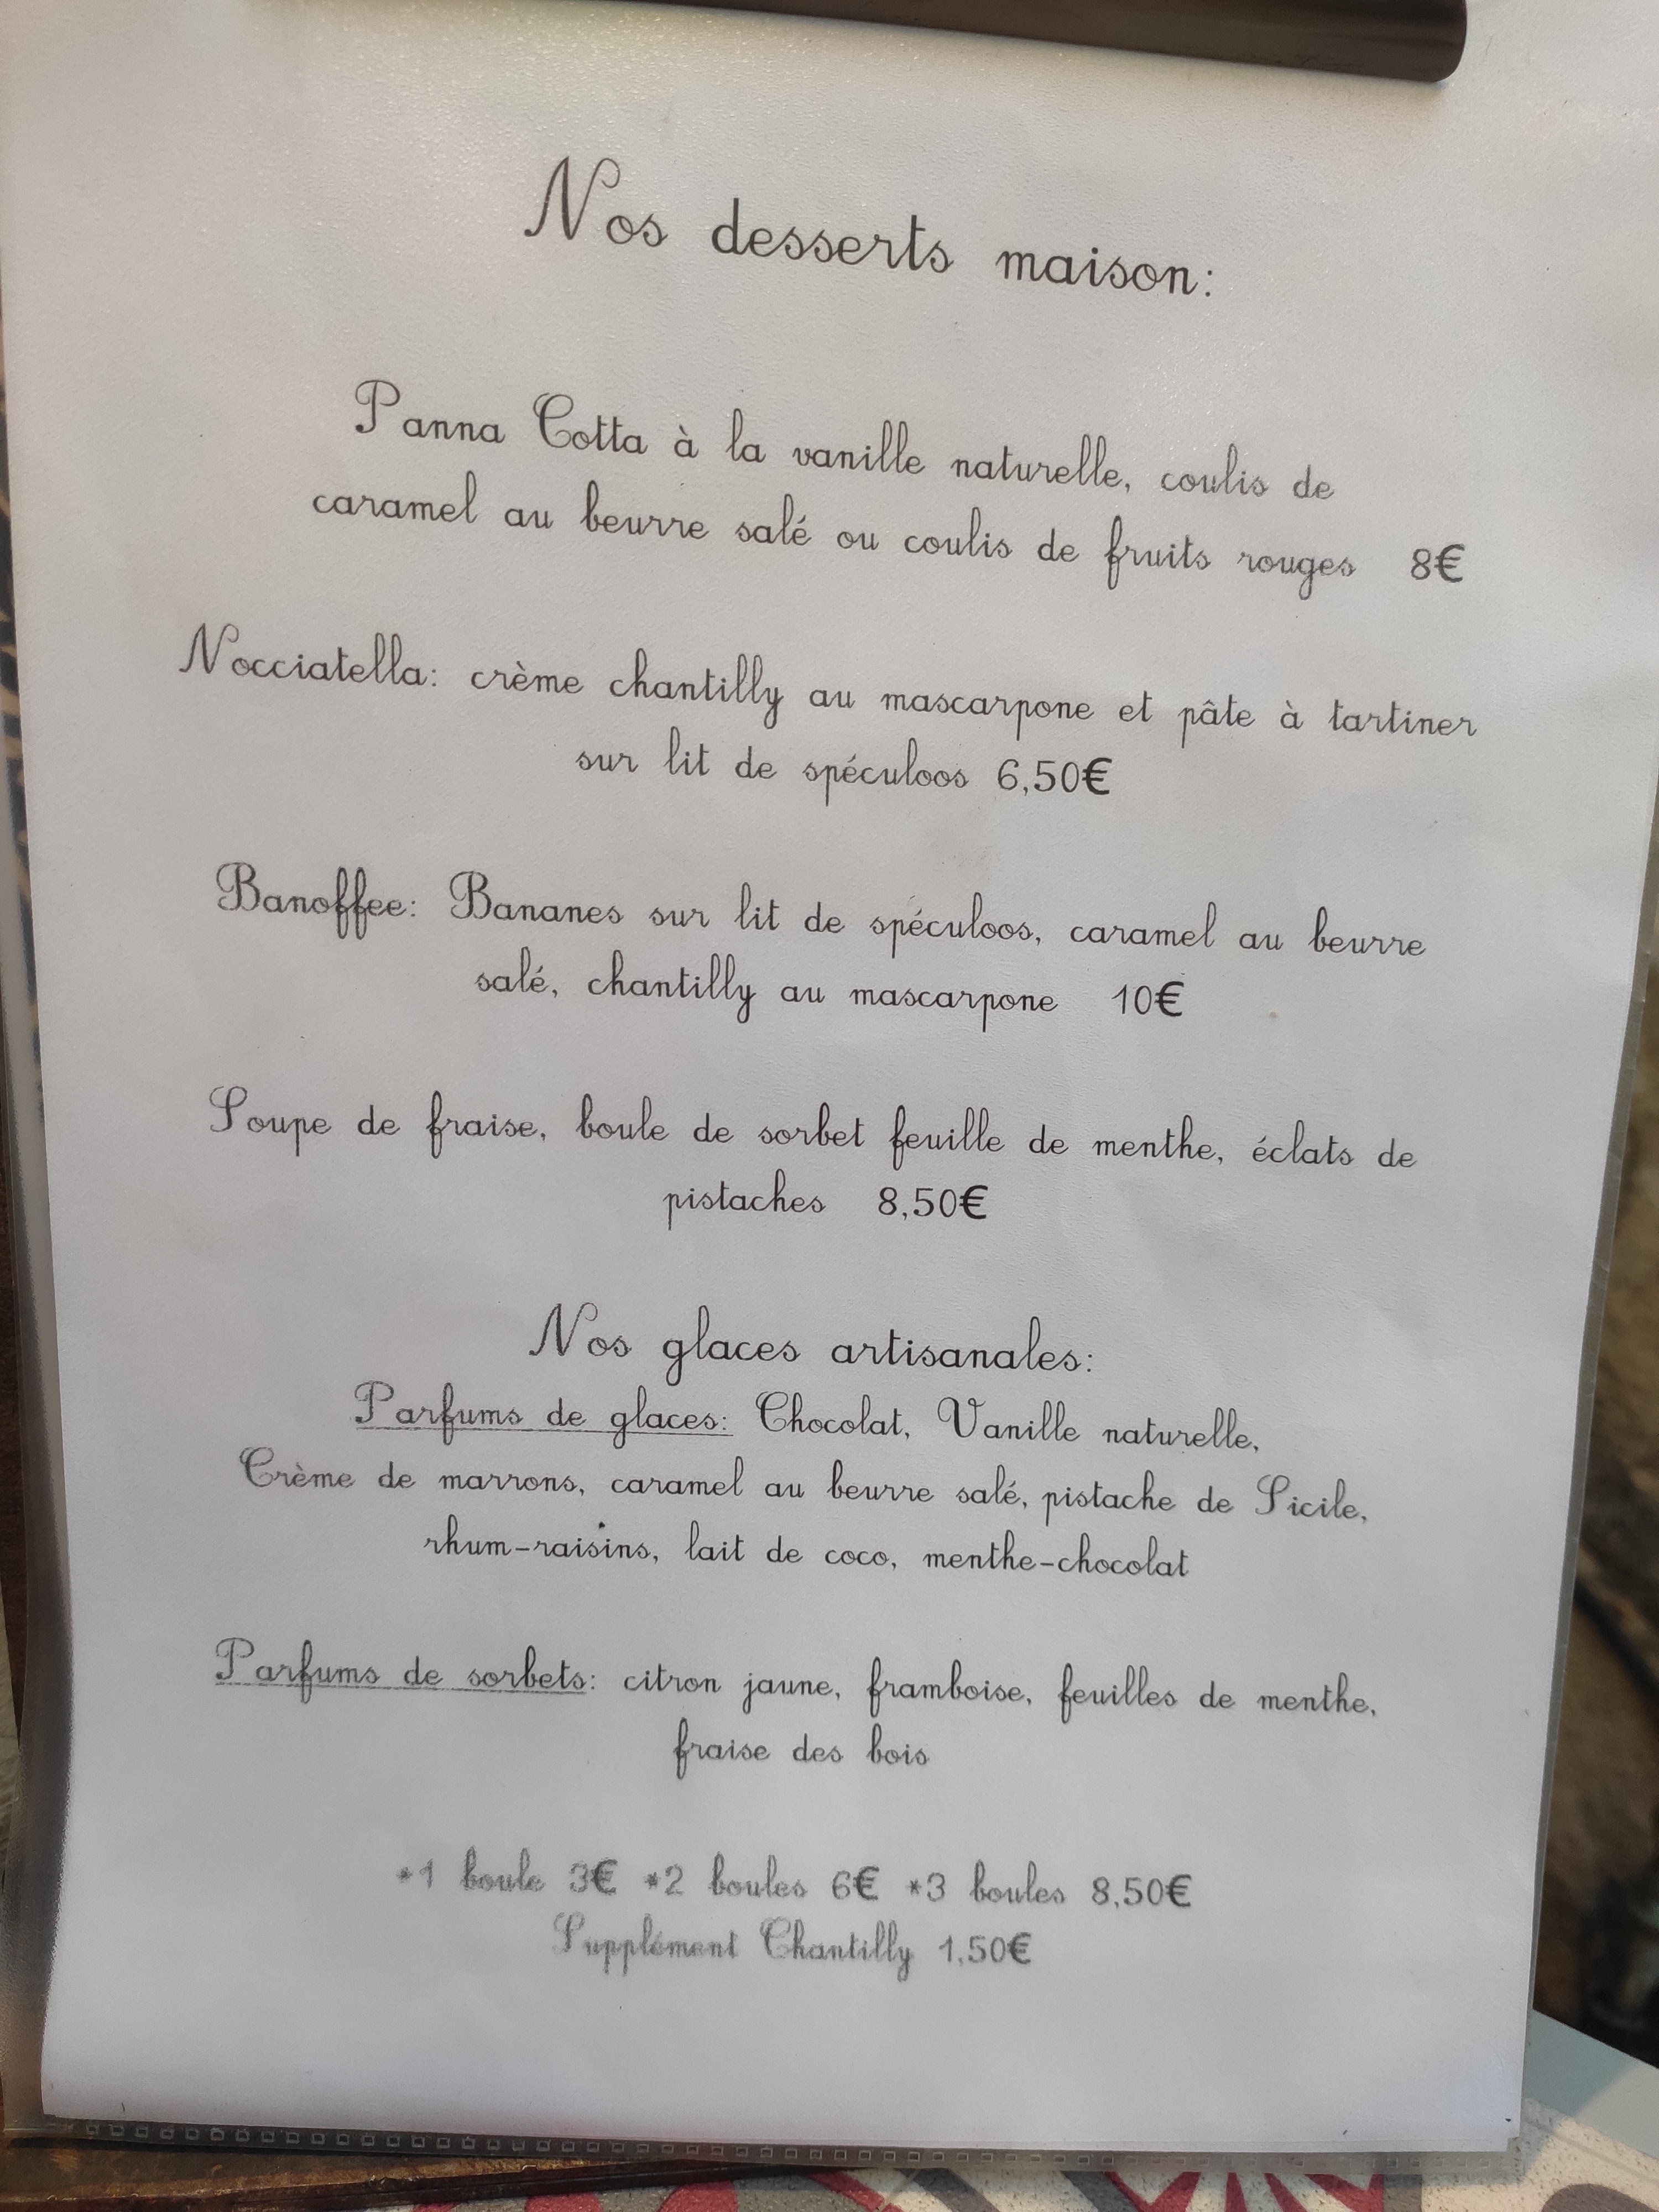 Nos desserts maison:
Panna Cotta à la vanille naturelle, coulis de
caramel au beurre salé ou coulis de fruits rouges 8€
Nocciatella: crème chantilly au mascarpone et pâte à tartiner
sur lit de spéculoos 6,50€
Banoffee: Bananes sur lit de spéculoos, caramel au beurre
salé, chantilly au mascarpone 10€
Soupe de fraise, boule de sorbet feuille de menthe, éclats de
pistaches 8,50€
Nos glaces artisanales:
Parfums de glaces: Chocolat, Vanille naturelle,
Crème de marrons, caramel au beurre salé, pistache de Sicile,
rhum-raisins, lait de coco, menthe-chocolat
Parfums de sorbets: citron jaune, framboise, feuilles de menthe,
fraise des bois
*1 boule 3€ *2 boules 6€ *3 boules 8,50€
Supplément Chantilly 1,50€